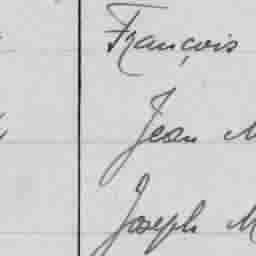 François
Jean M
Joseph M